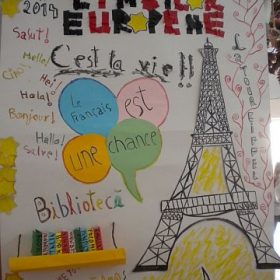 2014
LIMBILOR
EUROPENE
Salut!
Hello!
Ciao!
Hei!
Halal!
Bonjour!
Hallo!
Salve!
C'est la vie!!
Le
Français
est
une
chance
Bibliotecă
La Tour Eiffel